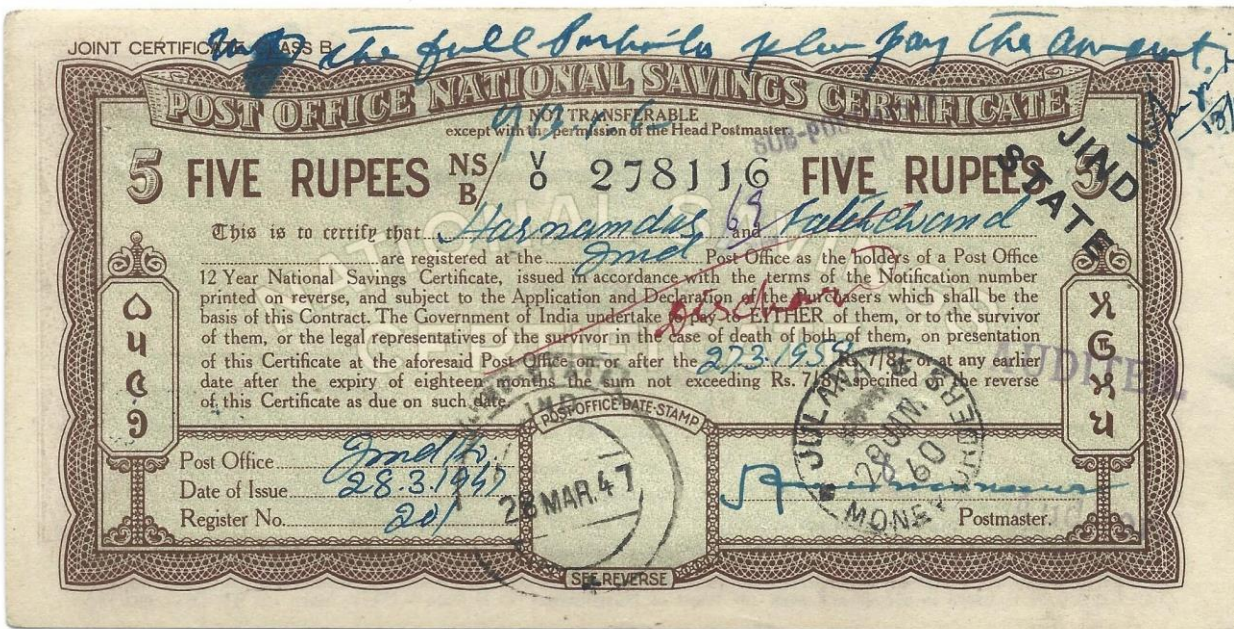 JOINT CERTIFICATE CLASS B
the full pay the amount.
POST OFFICE NATIONAL SAVINGS CERTIFICATE
NOT TRANSFERABLE
except with the permission of the Head Postmaster
SUB-POS
JIND STATE
5 FIVE RUPEES NS/B V/0 278116 FIVE RUPEES 5
This is to certify that Harnamdas 69 and Fatehchand
are registered at the Jind Post Office as the holders of a Post Office
12 Year National Savings Certificate, issued in accordance with the terms of the Notification number
printed on reverse, and subject to the Application and Declaration of the Purchasers which shall be the
basis of this Contract. The Government of India undertake to pay to EITHER of them, or to the survivor
of them, or the legal representatives of the survivor in the case of death of both of them, on presentation
of this Certificate at the aforesaid Post Office on or after the 27.3.1959 7/8/- or at any earlier
date after the expiry of eighteen months the sum not exceeding Rs. 7/8/- specified on the reverse
of this Certificate as due on such date.
Discharged
POST OFFICE DATE-STAMP
JIND
28 MAR.47
JULANA
20 JAN. 60
MONEY ORDERS
Post Office Jind
Date of Issue 28.3.1947
Register No. 201
Postmaster.
SEE REVERSE